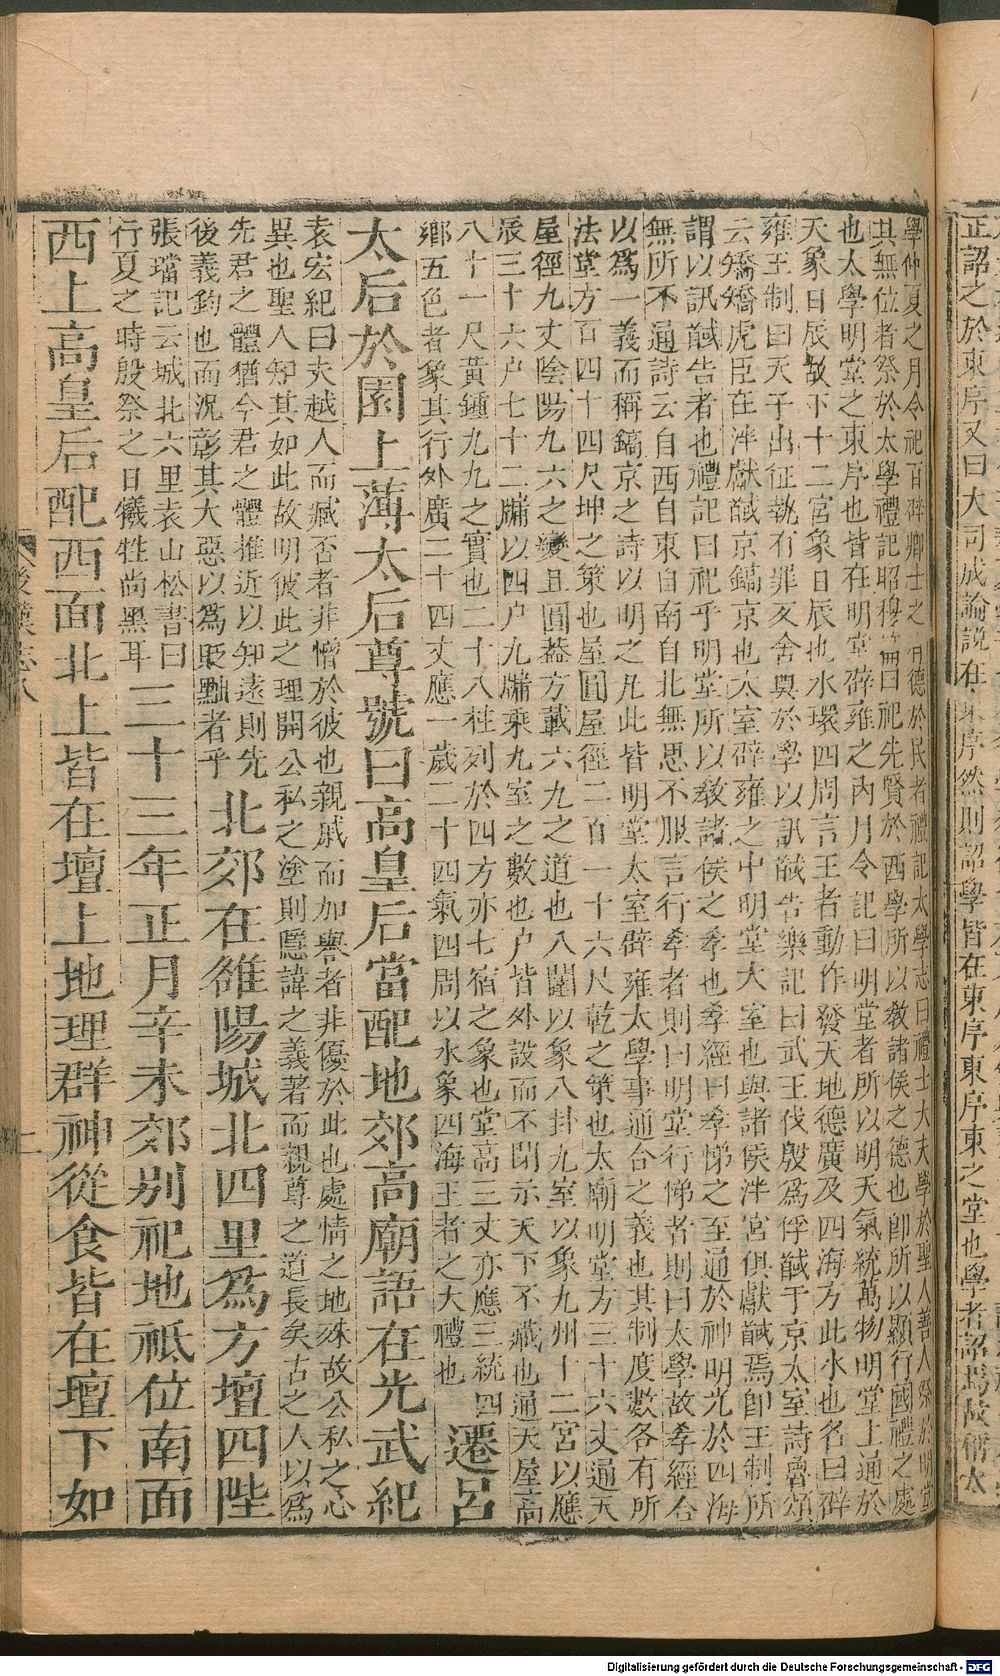 正詔之於東序又曰大司成論說在東序然則詔學皆在東序東序東之堂也學者詔焉故稱太
學仲夏之月令祀百辟卿士之有德於民者禮記太學志曰禮士大夫學於聖人善人祭於明堂
其無位者祭於太學禮記昭穆篇曰祀先賢於西學所以敎諸侯之德也卽所以顯行國禮之處
也太學明堂之東序也皆在明堂辟雍之內月令記曰明堂者所以明天氣統萬物明堂上通於
天象日辰故下十二宮象日辰也水環四周言王者動作發天地德廣及四海方此水也名曰辟
雍王制曰天子出征執有罪反舍奠於學以訊馘告樂記曰武王伐殷爲俘馘于京太室詩魯頌
云矯矯虎臣在泮獻馘京鎬京也太室辟雍之中明堂大室也與諸侯泮宮俱獻馘焉卽王制所
謂以訊馘告者也禮記曰祀乎明堂所以敎諸侯之孝也孝經曰孝悌之至通於神明光於四海
無所不通詩云自西自東自南自北無思不服言行孝者則曰明堂行悌者則曰太學故孝經合
以爲一義而稱鎬京之詩以明之凡此皆明堂太室辟雍太學事通合之義也其制度數各有所
法堂方百四十四尺坤之策也屋圓屋徑二百一十六尺乾之策也太廟明堂方三十六丈通天
屋徑九丈陰陽九六之變且圓蓋方載六九之道也八闥以象八卦九室以象九州十二宮以應
辰三十六户七十二牖以四户九牖乘九室之數也户皆外設而不閉示天下不藏也通天屋高
八十一尺黃鍾九九之實也二十八柱列於四方亦七宿之象也堂高三丈亦應三統四
鄉五色者象其行外廣二十四丈應一歲二十四氣四周以水象四海王者之大禮也
遷呂
太后於園上薄太后尊號曰高皇后當配地郊高廟語在光武紀
袁宏紀曰夫越人而臧否者非憎於彼也親戚而加譽者非優於此也處情之地殊故公私之心
異也聖人知其如此故明彼此之理開公私之塗則隱諱之義著而親尊之道長矣古之人以爲
先君之體猶今君之體推近以知遠則先
後義鈞也而況彰其大惡以爲貶黜者乎
北郊在雒陽城北四里爲方壇四陛
張璠記云城北六里袁山松書曰
行夏之時殷祭之日犧牲尚黑耳
三十三年正月辛未郊別祀地祇位南面
西上高皇后配西面北上皆在壇上地理群神從食皆在壇下如
後漢志八